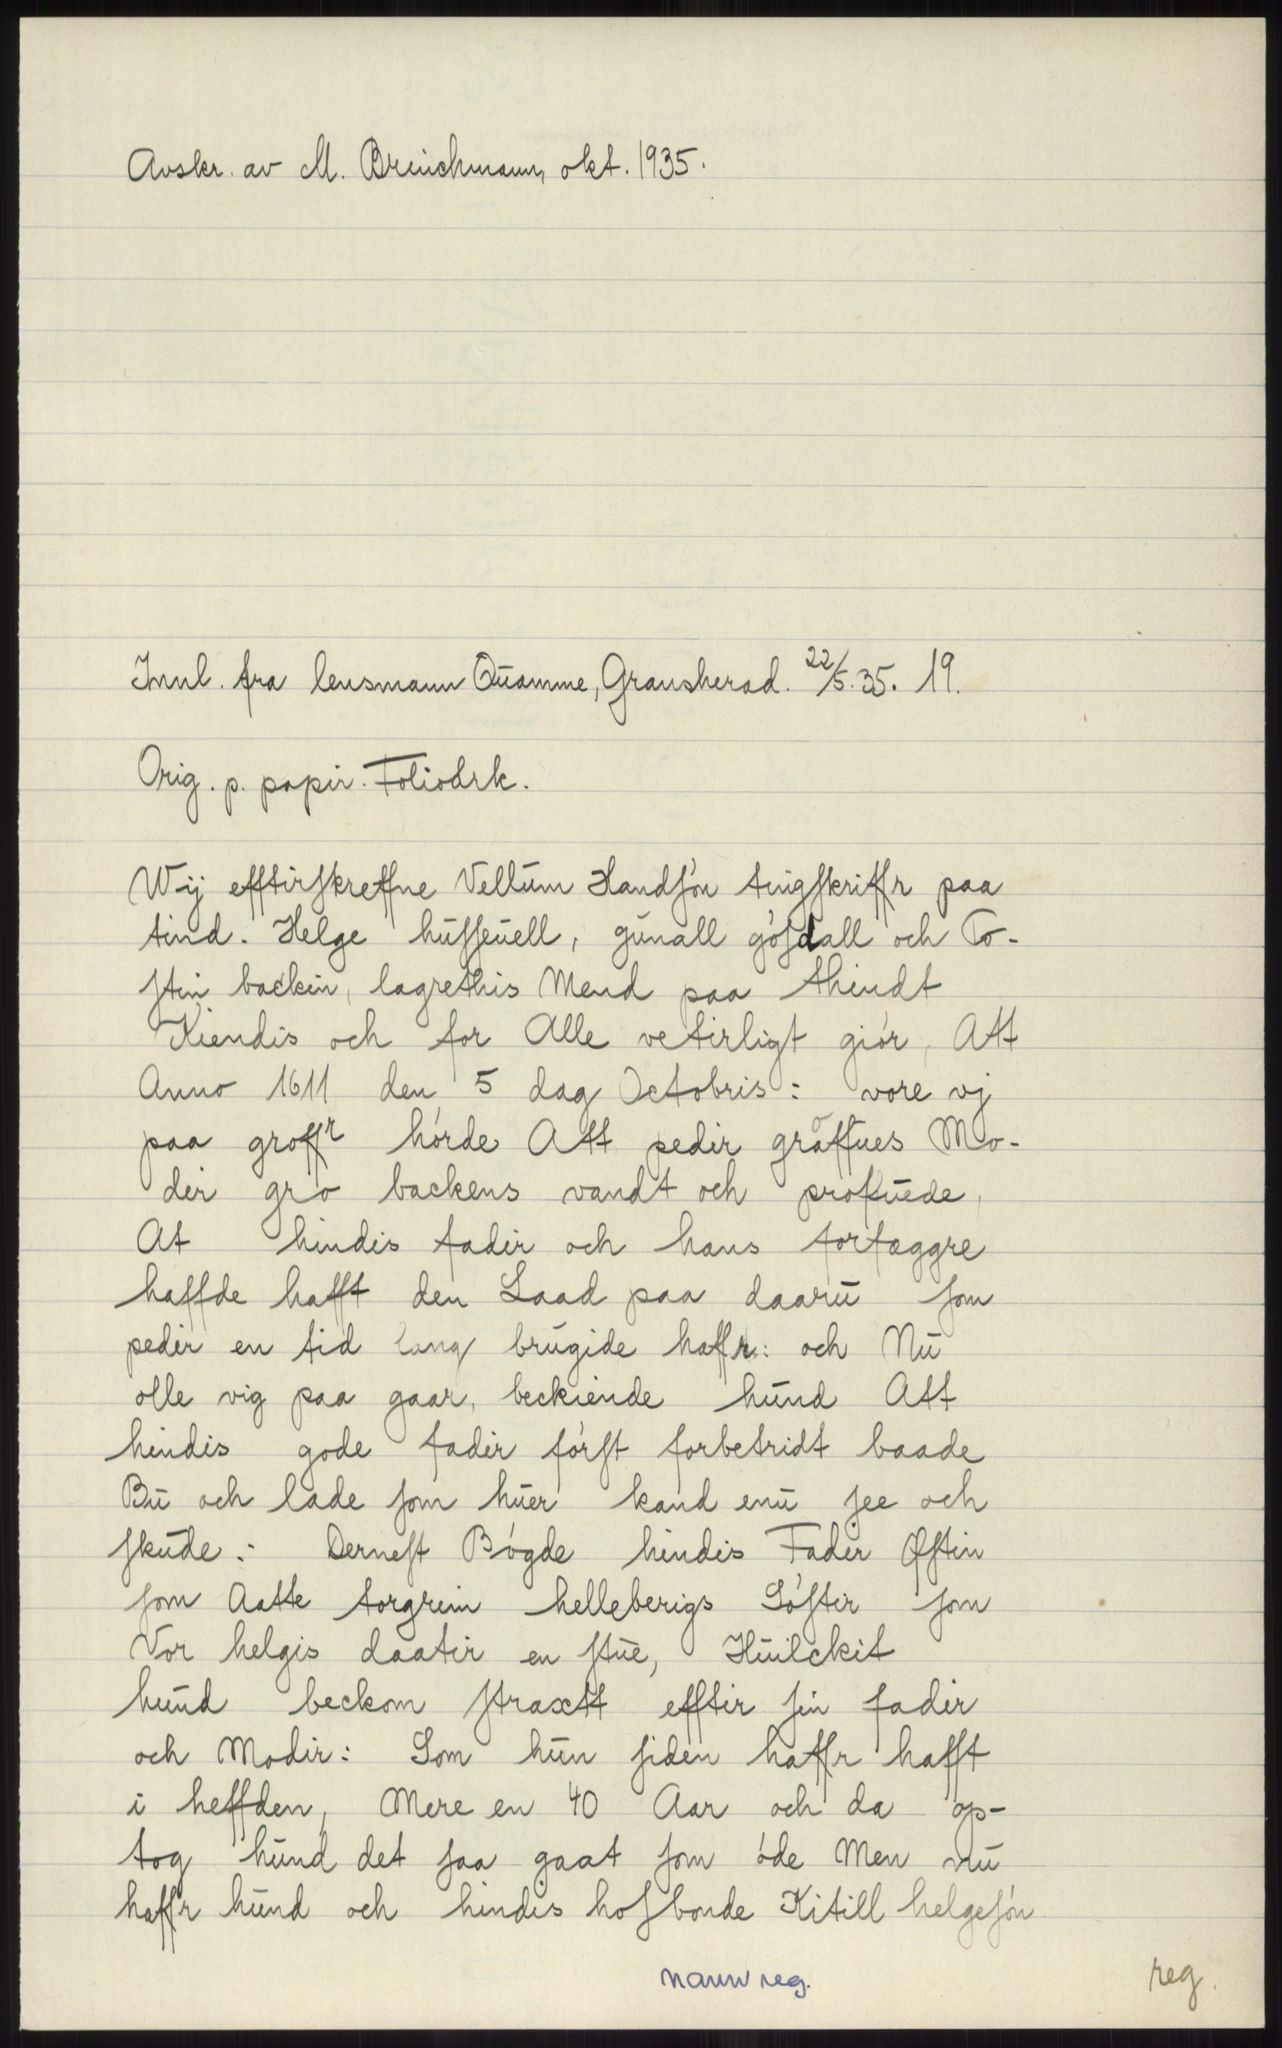 Avskr. av M. Brinchmann, okt. 1935.
Innl. fra lensmann Quamme, Gransherad. 22/5.35. 19.
Orig. p. papir. Foliodrk.
Wij efftirskreffne Vellum Handsón tingskriffr paa
tind. Helge husseuell, gunall gósdall och To-
stin backin, lagrethis Mend paa thindt
Kiendis och for Alle vetirligt giór, Att
Anno 1611 den 5 dag Octobris: vore vj
paa groffr hórde Att pedir gráffues Mo-
dir gro backens vandt och profuede,
At hindis fadir och hans forfæggre
haffde hafft den Laad paa daaru som
pedir en tid lang brugide haffr: och Nu
olle vig paa gaar, beckiende hund Att
hindis gode fadir fórst forbetridt baade
Bu och lade som huer kand enu see och
skude: Dernest Bógde hindis Fadir Østin
som Aatte torgrim helleberigs Sóstir som
Vor helgis daatir en stue, Huilckit
hund beckom straxtt efftir sin fadir
och Modir: Som hun siden haffr hafft
i heffden, Mere en 40 Aar och da op-
tog hund det saa gaat som óde Men nu
haffr hund och hindis hosbonde Kitill helgesón
navnreg.
reg.